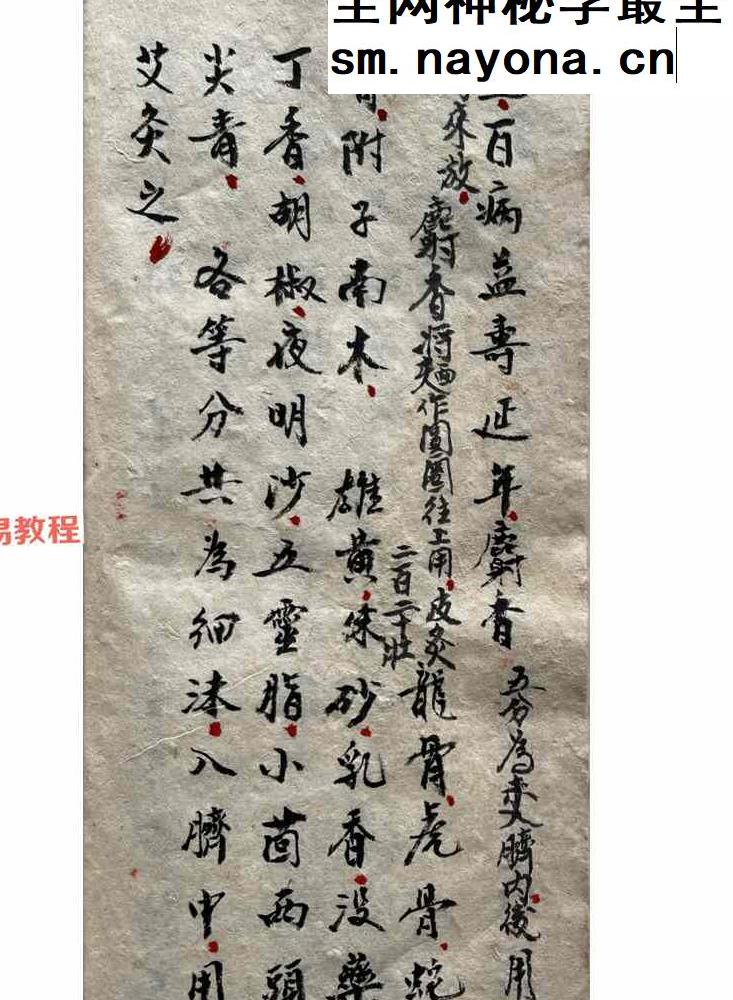 全网神秘学最全
sm.nayona.cn
百病益壽延年麝香
五分為末入臍內後用
來放麝香將麵作圓圈往上用皮灸
二百二十壯
龍骨虎骨蛇
附子南木 雄黃朱砂乳香没藥
丁香胡椒夜明沙五靈脂小茴两頭
尖青 各等分共為細沫入臍中用
艾灸之
易教程